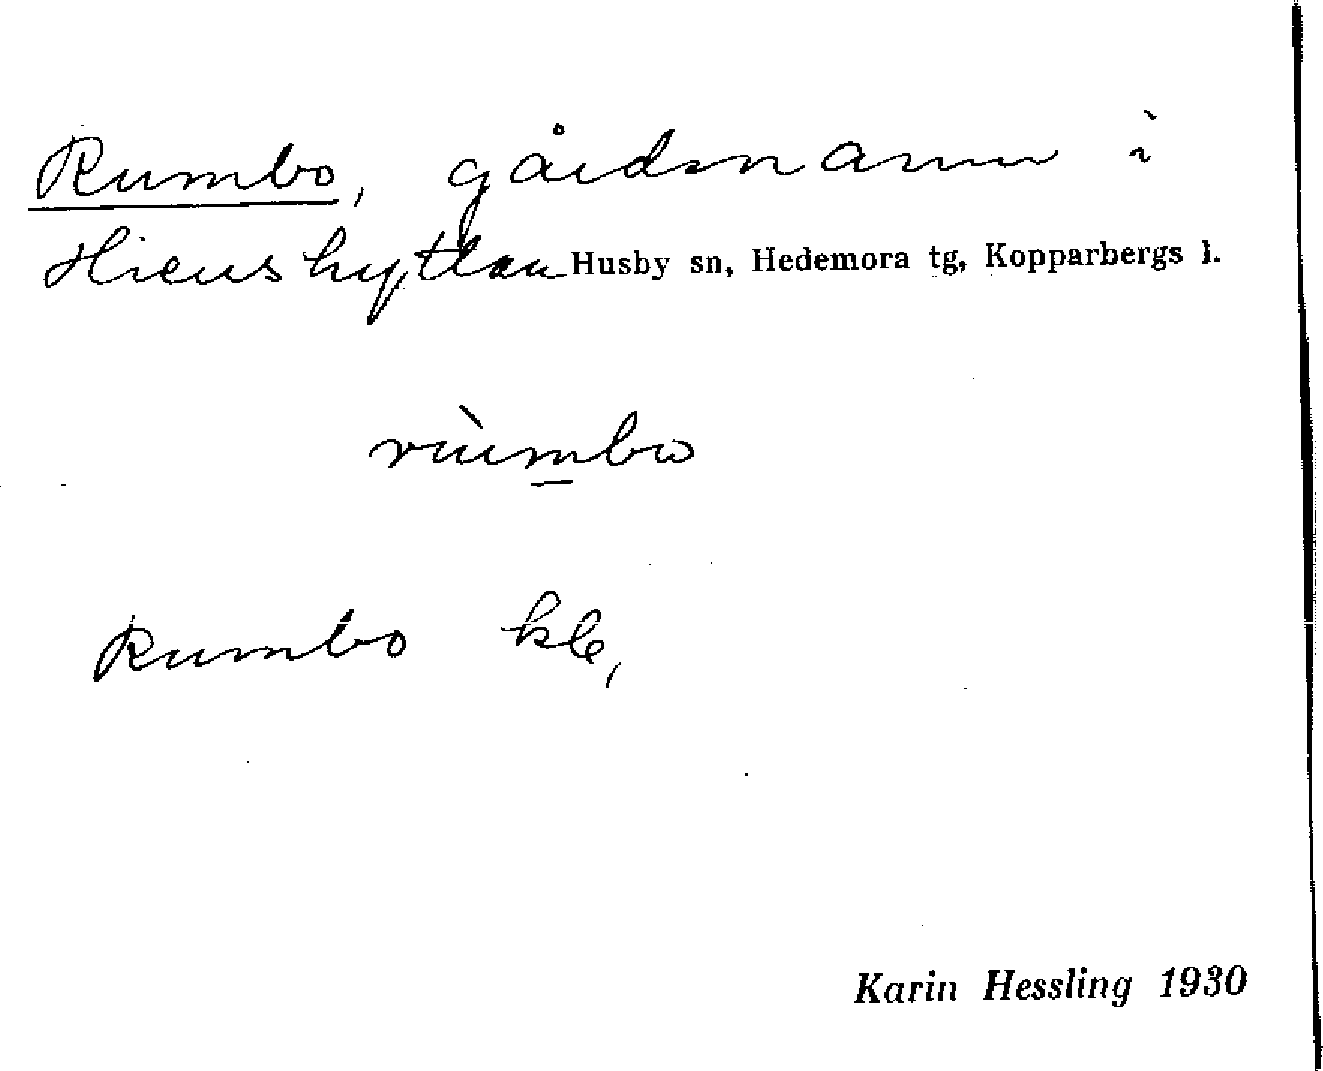 Rumbo, gårdsnamn i
Hienshyttan Husby sn, Hedemora tg, Kopparbergs l.
rùmbo
Rumbo kb,
Karin Hessling 1930